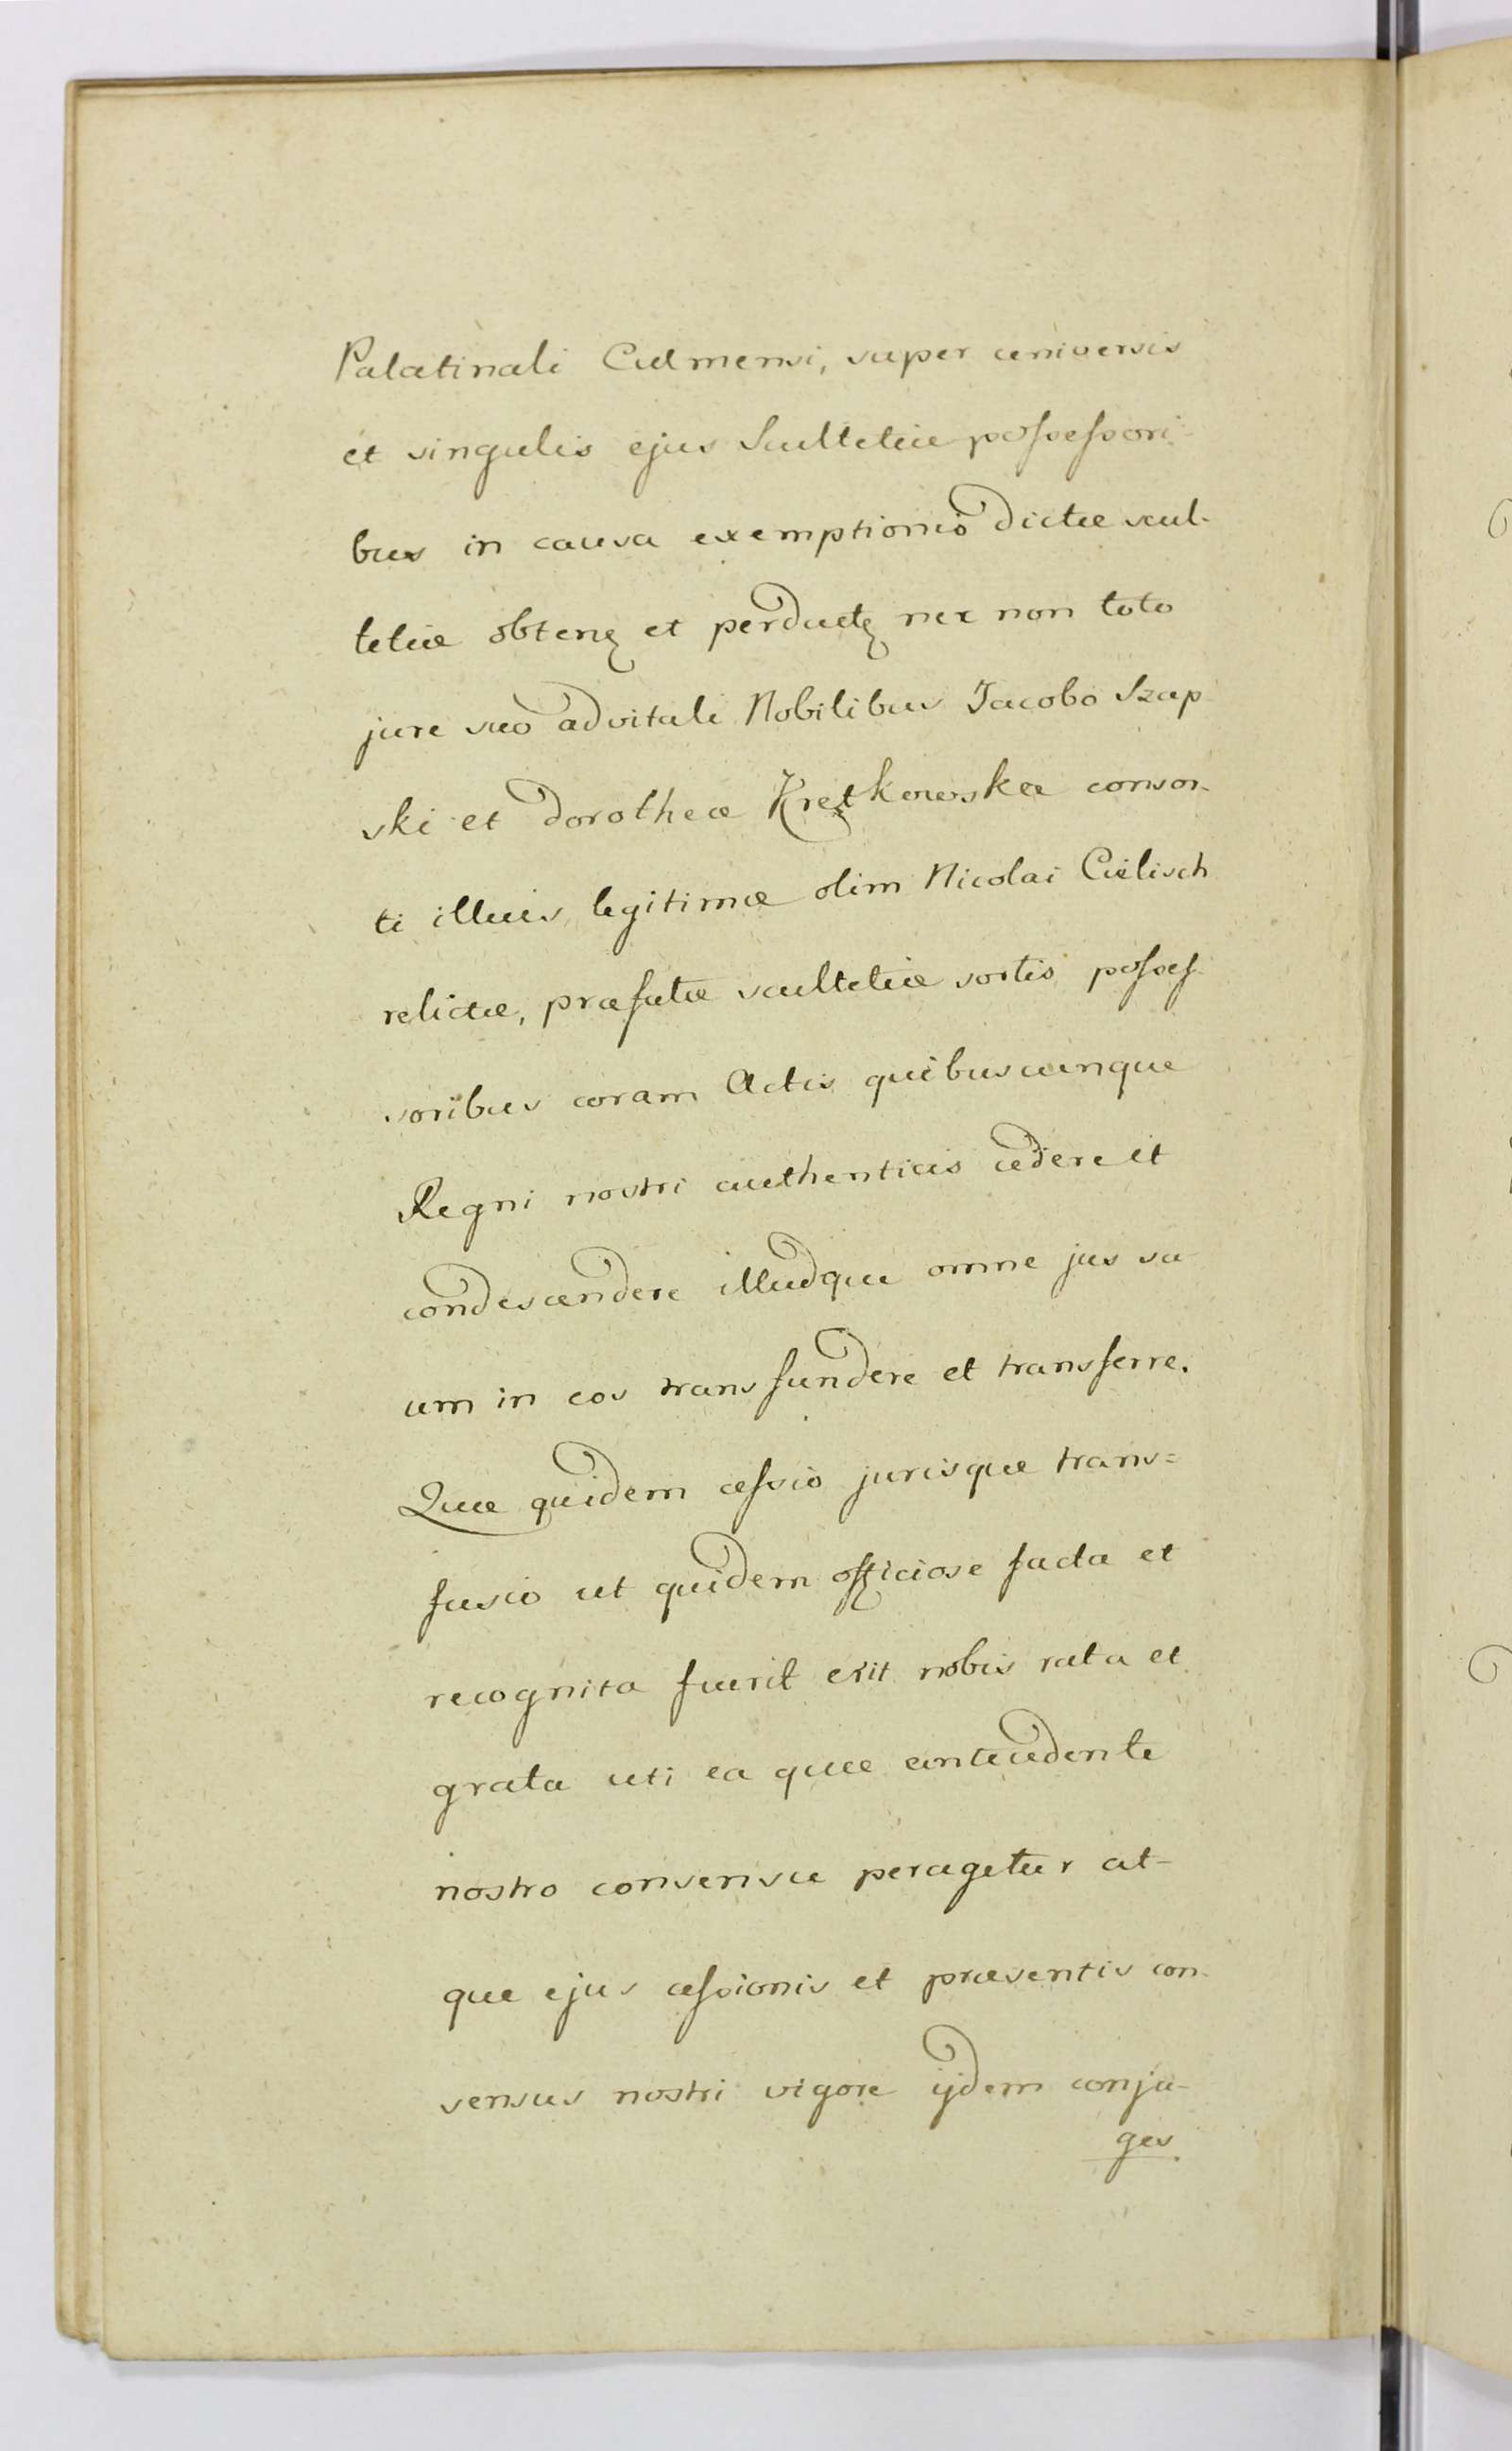 Palatinali Culmensi, super universis
et singulis ejus Scultetiæ possessori-
bus in causa exemptionis dictæ scul-
tetiæ obtenꝫ et perductꝫ nec non toto
jure suo advitali Nobilibus Jacobo Szap
ski et Dorotheæ Kretkowskæ consor-
ti illius legitimæ olim Nicolai Cielisch
relictæ, præfatæ scultetiæ sortis posses-
soribus coram Actis quibuscunque
Regni nostri authenticis cedere et
condescendere illudque omne jus su
um in eos transfundere et transferre.
Quæ quidem cessio jurisque trans=
fusio ut quidem officiose facta et
recognita fuerit erit nobis rata et
grata uti ea quæ antecedente
nostro consensu peragetur at-
que ejus cessionis et præsentis con-
sensus nostri vigore ijdem conju-
ges.